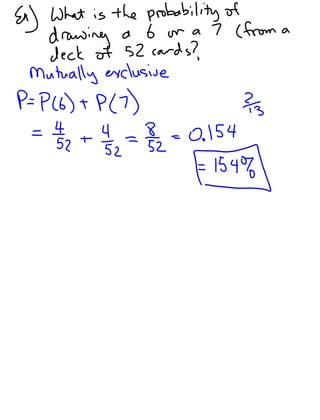 Ex) What is the probability of
drawing a 6 or a 7 (from a
deck of 52 cards?
Mutually exclusive
P = P(6) + P(7)
2/13
= 4/52 + 4/52 = 8/52 = 0.154
= 15.4%